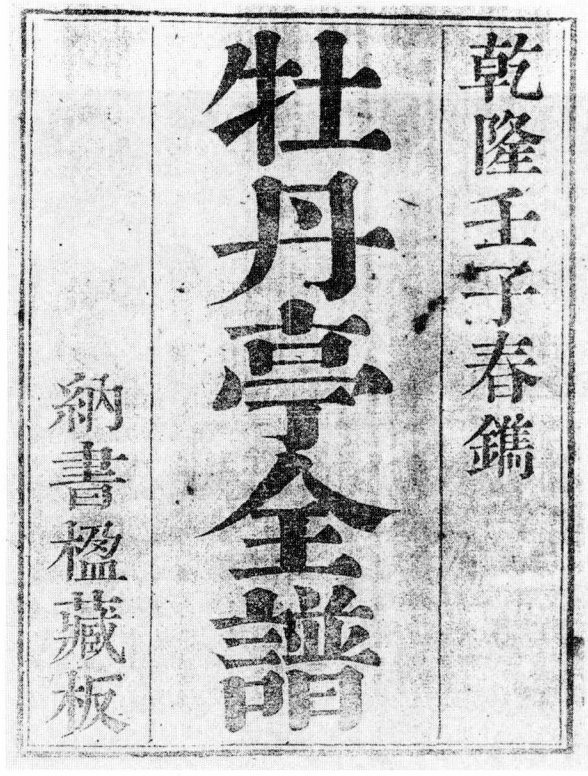 乾隆壬子春鐫
牡丹亭全譜
納書楹藏板